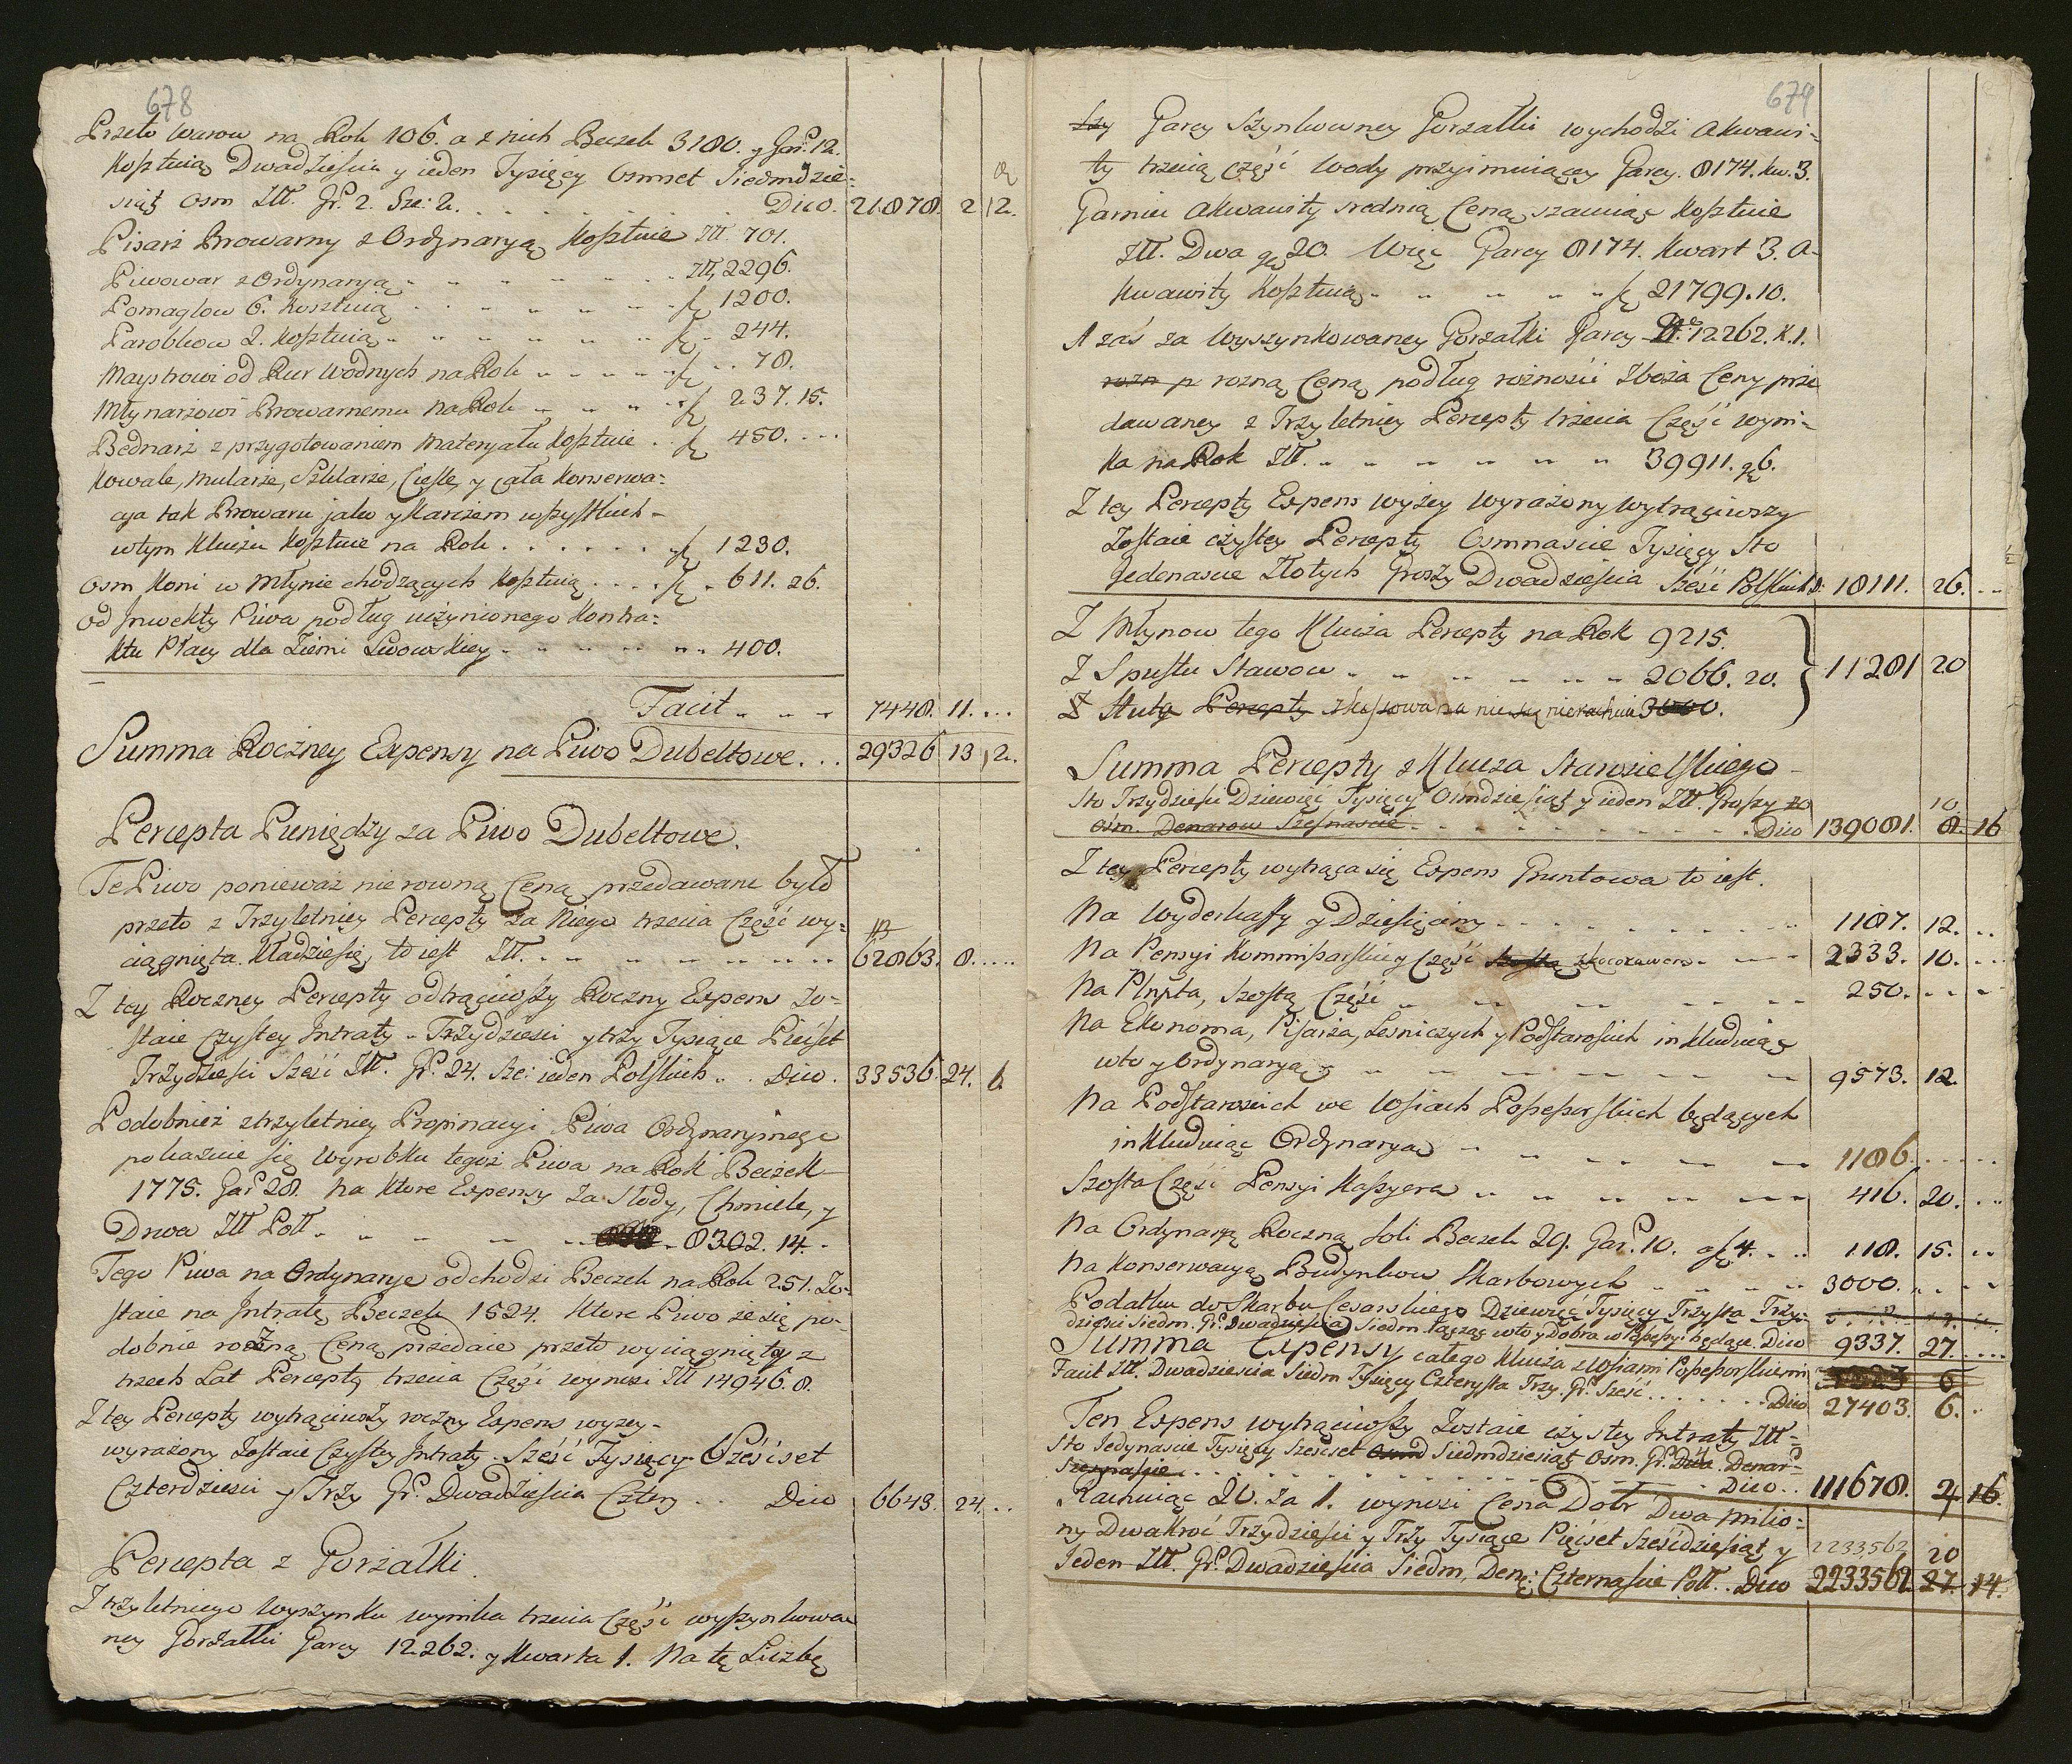 678
Przeto Warow na Rok 106. a z nich Beczek 3180. y Gar. 12.
Kosztuią Dwadziescia y ieden Tysięcy Osmset Siedmdzie-
siąt Osm Złł. Gr. 2. Sze: 2. . . . . . . Dico. 21878. 2 12.
Pisarz Browarny z Ordynaryą Kosztuie Złł. 701.
Piwowar z Ordynaryą . . . . . Złł. 2296.
Pomaglow 6. Kosztuią . . . . . 1200.
Parobkow 2. Kosztuią . . . . . 244.
Maystrowi od Rur Wodnych na Rok . . . . 78.
Młynarzowi Browarnemu na Rok . . . . 237. 15.
Bednarz z przygotowaniem Materyału Kosztuie . . 450. . . .
Kowale, Mularze, Szklarze, Cieśle, y cała Konserwa-
cya tak Browaru jako y Karczem wszystkich
w tym Kluczu Kosztuie na Rok . . . . . . 1230.
Osm Koni w Młynie chodzących Kosztuią . . . . 611. 26.
Od Inwekty Piwa podług uczynionego Kontra-
ktu Płacy dla Ziemi Lwowskiey . . . . . . 400.
Facit . . . 7448. 11. . . .
Summa Roczney Expensy na Piwo Dubeltowe. . . 29326 13 12.
Percepta Pieniędzy za Piwo Dubeltowe.
Te Piwo ponieważ nie rowną Ceną przedawane było
przeto z Trzyletniey Percepty za Niego trzecia Część wy-
ciągnięta. Kładzie się, to iest Złł. . . . . . . 62863. 8. . . . .
Z tey Roczney Percepty odtrąciwszy Roczny Expens zo-
staie Czystey Intraty . Trzydziesci y trzy Tysiące Pięćset
Trzydziesci Sześć Złł. Gr. 24. Sze: ieden Polskich . . Dico. 33536. 24. 6
Podobnież z trzyletniey Propinacyi Piwa Ordynaryinego
pokazuie się Wyrobku tegoż Piwa na Rok Beczek
1775. Gar. 28. na Ktore Expensy za Słody, Chmiele, y
Drwa Złł Poll . . . . . . 8302. 14. .
Tego Piwa na Ordynarye odchodzi Beczek na Rok 251. Zo-
staie na Intratę Beczek 1524. Ktore Piwo że się po-
dobnie rożną Ceną przedaie przeto wyciągnięty z
trzech Lat Percepty trzecia Część wynosi Złł 14946. 8.
Z tey Percepty wytrąciwszy roczny Expens wyzey
wyrażony Zostaie Czystey Intraty . Sześć Tysięcy Sześćset
Czterdziesci y Trzy Gr. Dwadziescia Cztery . . Dico 6643. 24. . .
Percepta z Gorzałki.
Z trzyletniego Wyszynku wynika trzecia Część wyszynkowa
ney Gorzałki Garcy 12262. y Kwarta 1. Na tę Liczbę
679
Garcy Szynkowney Gorzałki wychodzi Akwawi-
ty trzecią Część Wody przyimuiącey Garcy. 8174. Kw. 3.
Garniec Akwawity srednią Ceną szacuiąc Kosztuie
Złł. Dwa gr 20. Więc Garcy 8174. Kwart 3. A-
kwawity Kosztuią . . . . . 21799. 10.
A zaś za Wyszynkowaney Gorzałki Garcy 12262. K. 1.
rozn p rozną Ceną podług rożności Zboża Ceny prze
dawaney z Trzyletniey Percepty trzecia Część wyni-
ka na Rok Złł. . . . . . . 39911. gr 6.
Z tey Percepty Expens wyżey wyrażony wytrąciwszy
Zostaie czystey Percepty Osmnascie Tysięcy Sto
Jedenascie Złotych Groszy Dwadziescia Sześć Polskich D: 18111. 26. . .
Z Młynow tego Klucza Percepty na Rok 9215.
Z Spustu Stawow . . . . . . . 2066. 20. 11281 20
Z Hutą Percepty skassowana nie się nierachuie 3000.
Summa Percepty z Klucza Starosielskiego
Sto Trzydzieści Dziewięć Tysięcy Osmdziesiąt y ieden Złł. Groszy 20
Ośm. Denarow Szesnascie . . . . . . . . . Dico 139081. 10 8. 16
Z tey Percepty wytrąca się Expens Gruntowa to iest.
Na Wyderkaffy y Dziesięciny . . . . . . . 1187. 12. . .
Na Pensyi Kommissarskiey Część Szostą . . . 2333. 10. . . .
Na Plnpta, Szostą Część . . . . . 250. . . .
Na Ekonoma, Pisarza, Leśniczych y Podstarosich inkluduiąc
w to y Ordynaryą . . . . . . 9573. 12.
Na Podstaroscich we Wsiach Possessorskich będących
inkluduiąc Ordynaryą . . . . . 1186. . . . .
Szosta Część Pensyi Kassyera . . . . . 416. 20. . .
Na Ordynaryą Roczną Soli Beczek 29. Gar. 10. a 4. . . 118. 15. . .
Na Konserwacyą Budynkow Skarbowych . . . . 3000. . . . .
Podatku do Skarbu Cesarskiego Dziewięć Tysięcy Trzysta Trzy-
dzieści Siedm. Gr. Dwadziescia Siedm łącząc w to y Dobra w Possessyi będące. Dico 9337. 27. . . .
Summa Expensy całego Klucza z Wsiami Possessorskiemi
Facit Złł. Dwadziescia Siedm Tysięcy Czterysta Trzy. Gr. Sześć . . . . . Dico 27403. 6. .
Ten Expens wytrąciwszy Zostaie czystey Intraty Złł.
Sto Jedynascie Tysięcy Sześćset Siedmdziesiąt Osm. Gr. Dwa. Denar:
Szesnascie . . . . . . . . . Dico . . 111678. 4 16.
Rachuiąc 20. za 1. wynosi Cena Dobr Dwa Milio-
ny Dwakroć Trzydzieści y Trzy Tysiące Pięćset Sześćdziesiąt y 2233562 20
Jeden Złł. Gr. Dwadziescia Siedm, Dena: Czternascie Poll. . Dico 2233562 27. 14.